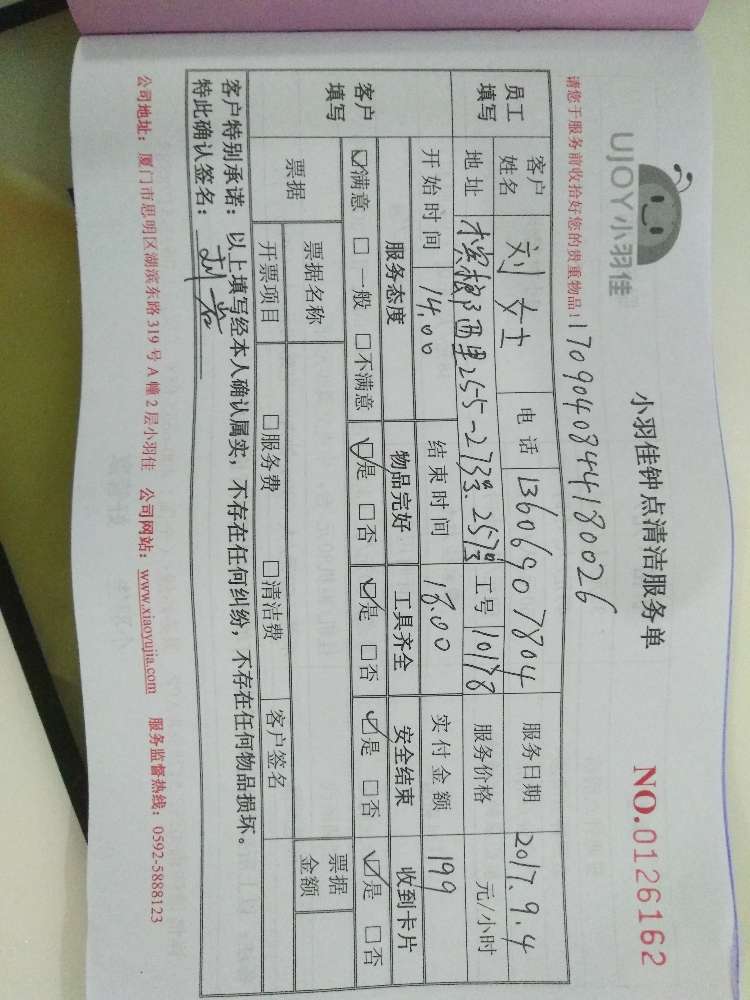 UJOY小羽佳
小羽佳钟点清洁服务单
NO.0126162
请您于服务前收拾好您的贵重物品！
1709040844180026
员工填写
客户姓名 刘女士 电话 13606907804 服务日期 2017.9.4
地址 西里255-273 工号 10178 服务价格 元/小时
开始时间 14.00 结束时间 18.00 实付金额 199
客户填写
服务态度 物品完好 工具齐全 安全结束 收到卡片
☑满意 □一般 □不满意 ☑是 □否 ☑是 □否 ☑是 □否 ☑是 □否
票据 票据名称 票据金额
开票项目 □服务费 □清洁费 客户签名
客户特别承诺：以上填写经本人确认属实，不存在任何纠纷，不存在任何物品损坏。
特此确认签名：
公司地址：厦门市思明区湖滨东路319号A幢2层小羽佳 公司网站：www.xiaoyujia.com 服务监督热线：0592-5888123